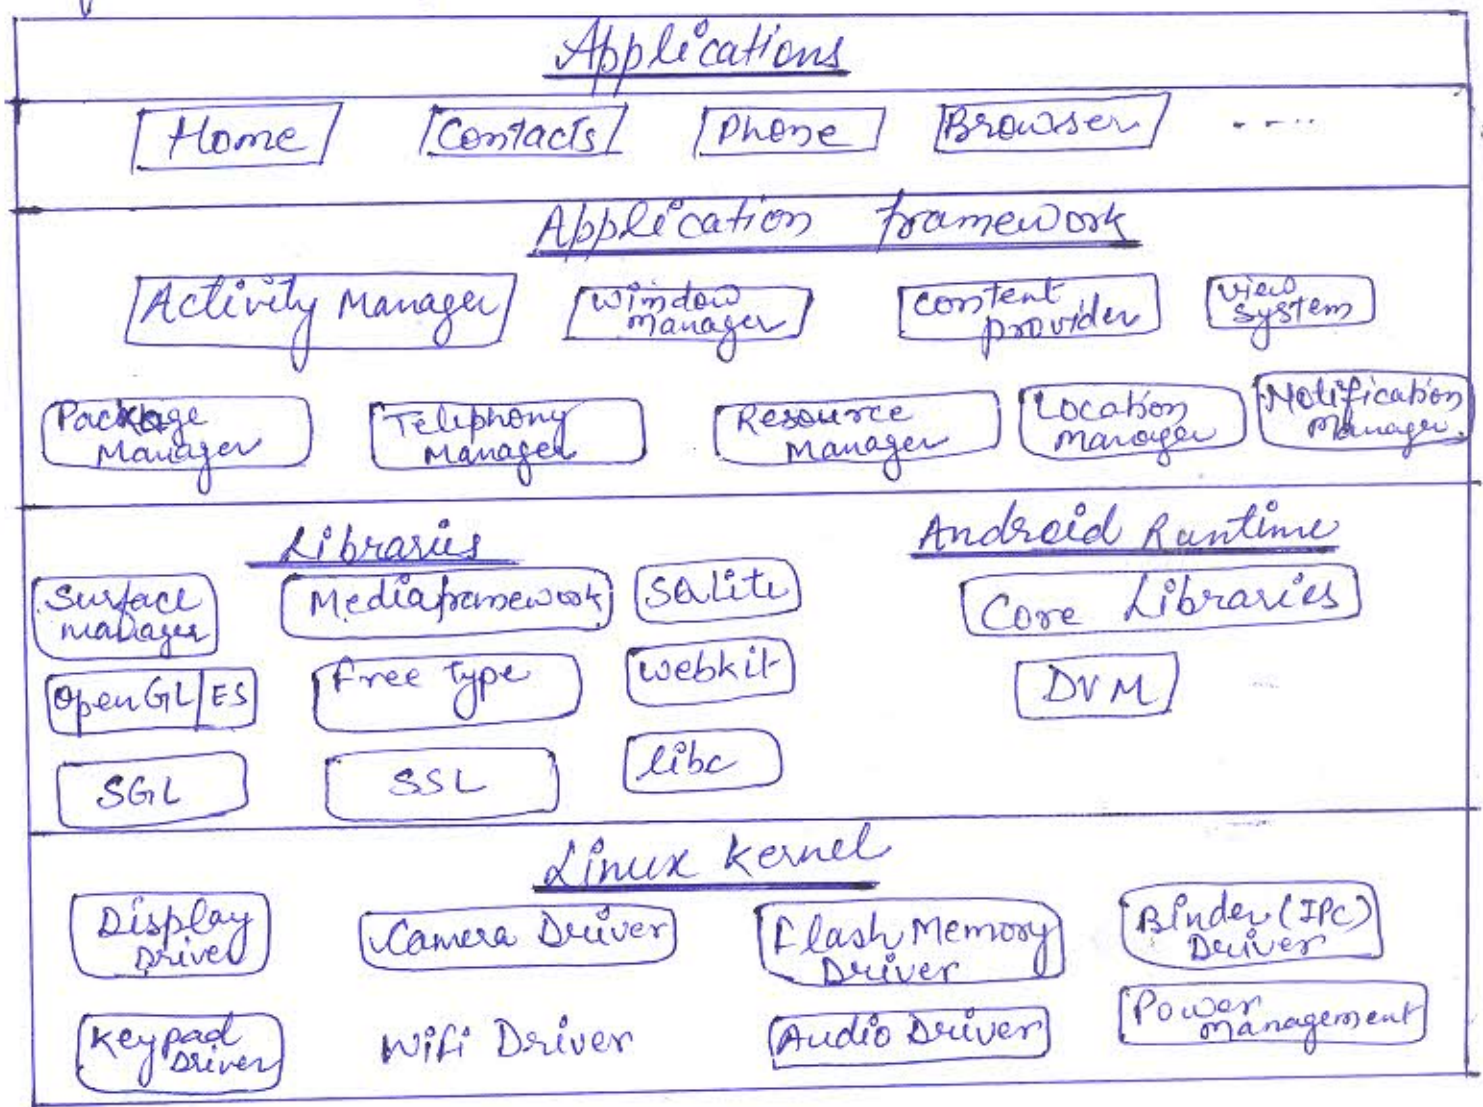 Applications
Home Contacts Phone Browser ....
Application framework
Activity Manager
Window Manager
Content provider
View System
Package Manager
Telephony Manager
Resource Manager
Location Manager
Notification Manager
Libraries
Surface manager
Mediaframework
SQLite
OpenGL/ES
Free type
Webkit
SGL
SSL
libc
Android Runtime
Core Libraries
DVM
Linux Kernel
Display Driver
Camera Driver
Flash Memory Driver
Binder (IPC) Driver
Keypad Driver
Wifi Driver
Audio Driver
Power Management